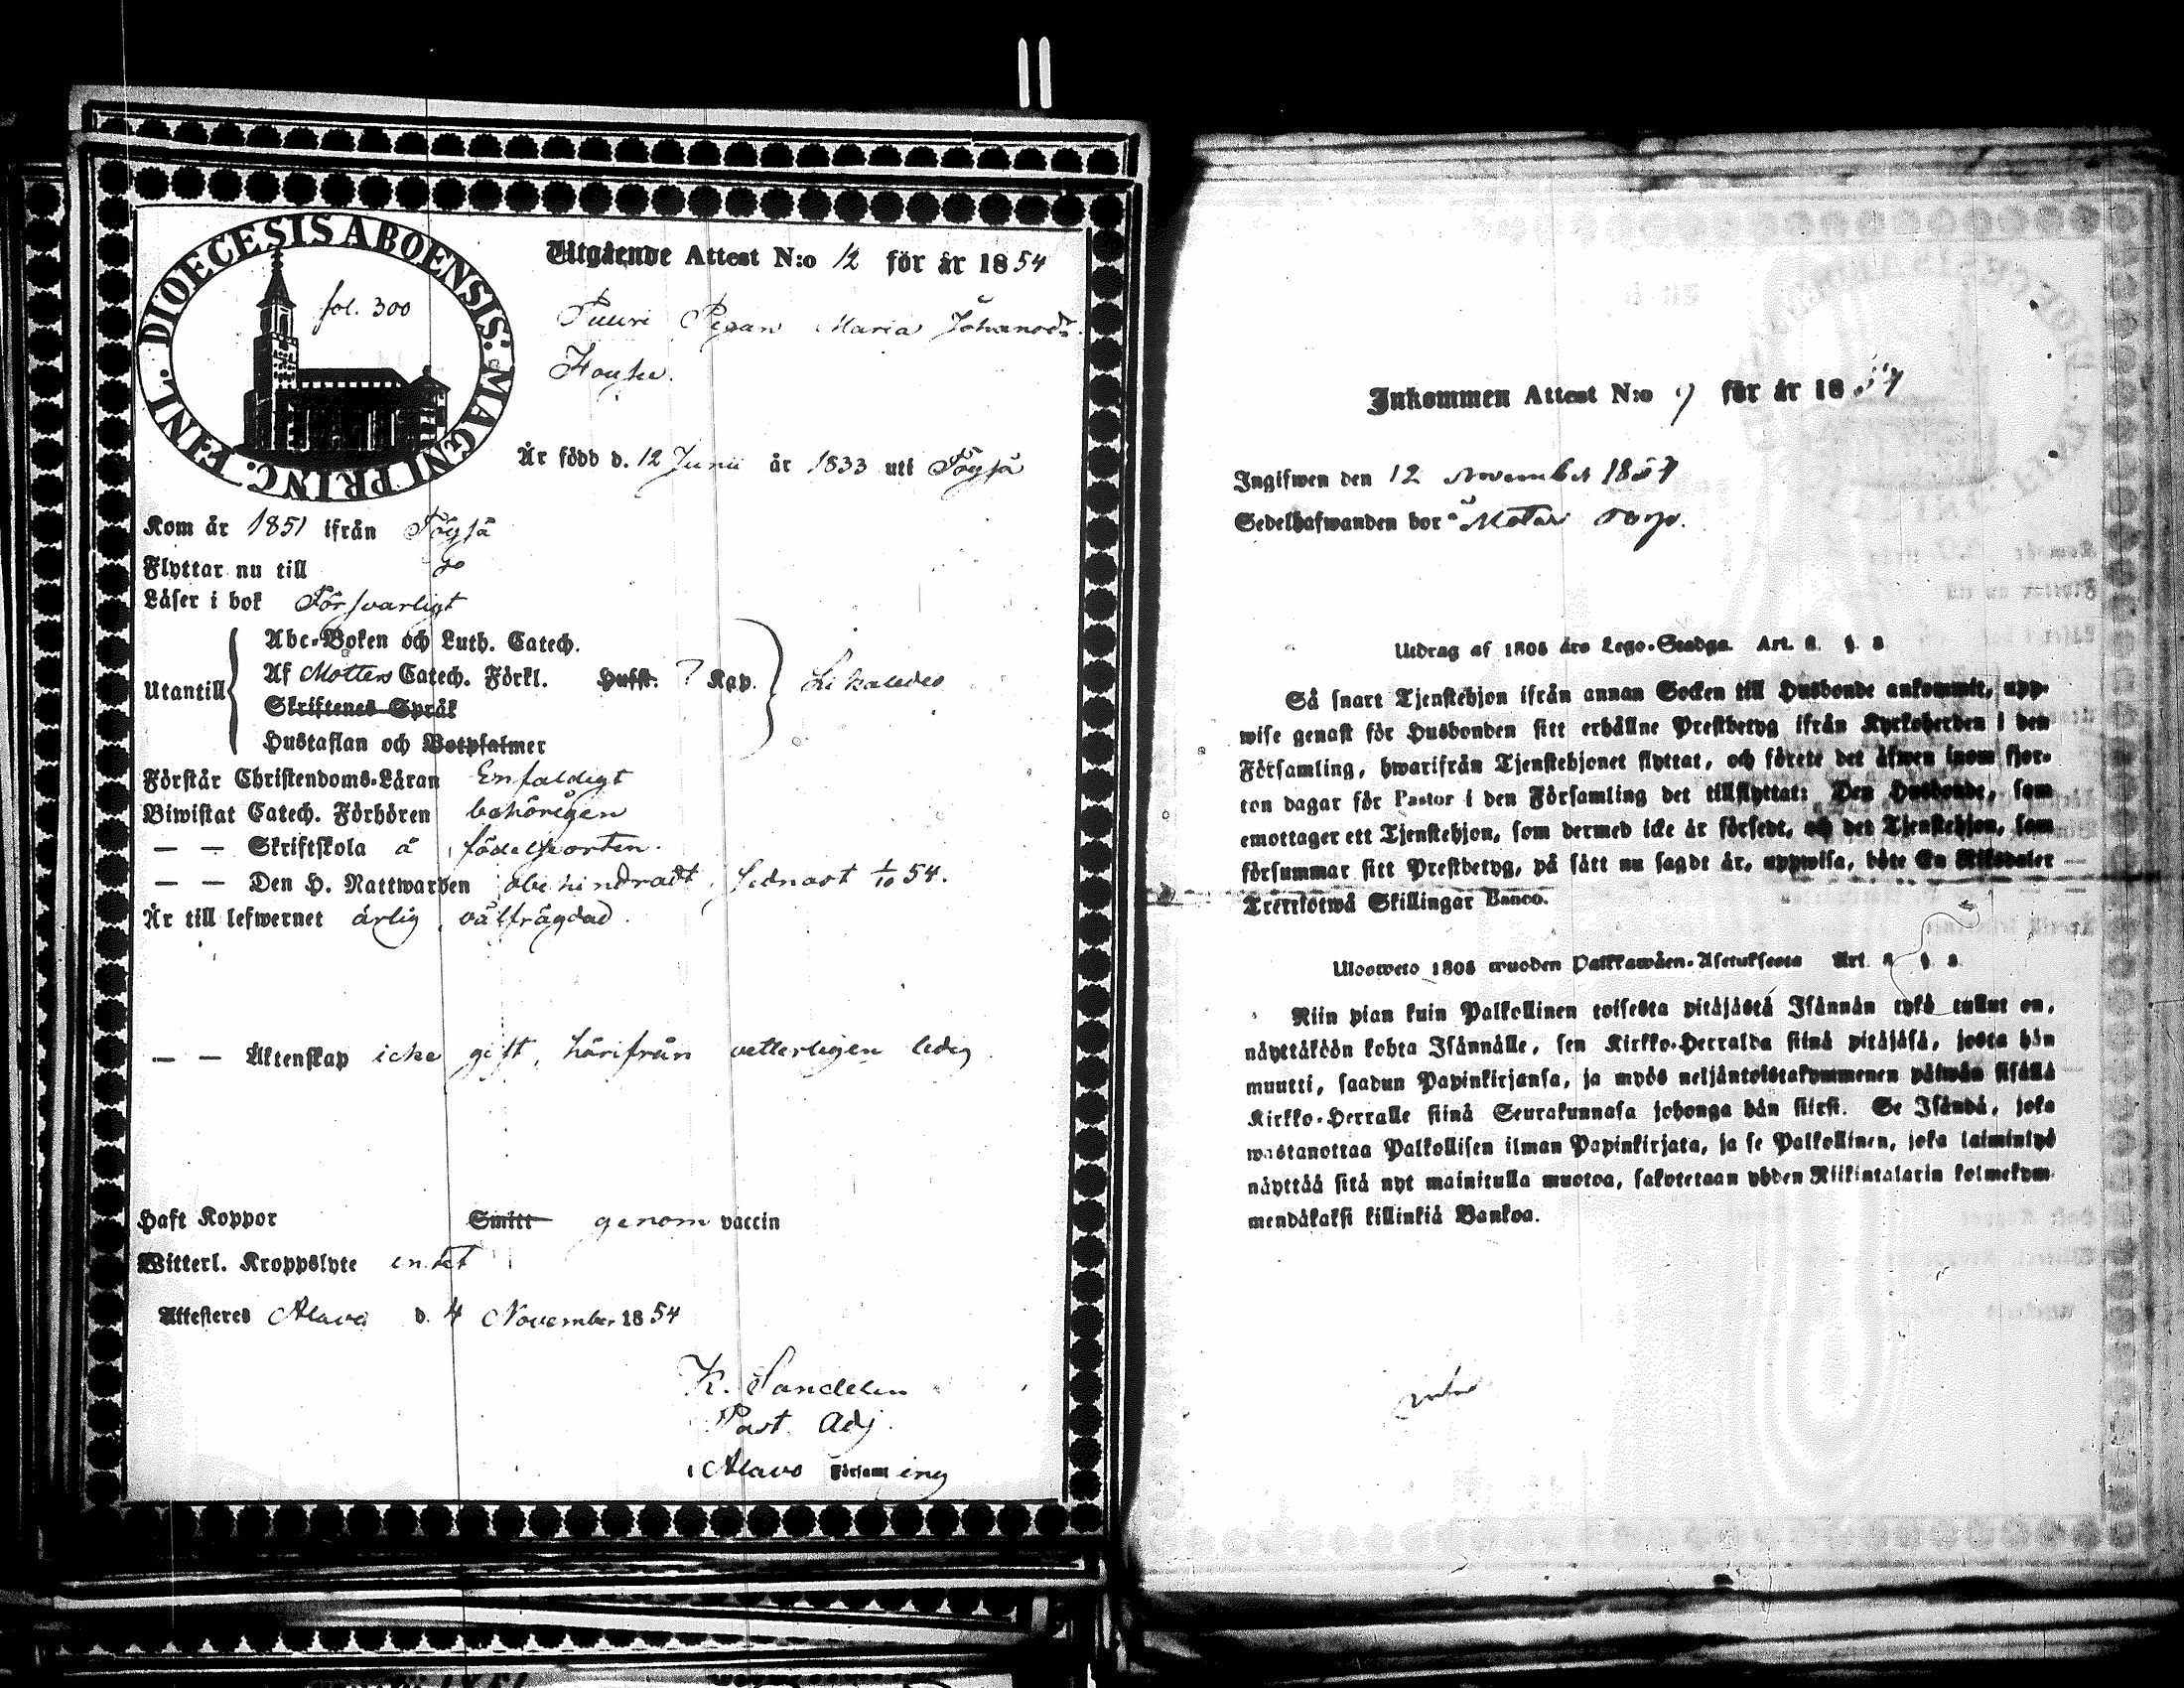 DIOECESIS ABOENSIS. MAGNI PRINC. FINL.
fol. 300
Utgående Attest N:o 12 för år 1854
Puuri Pigan Maria Johansdr
Är född d. 12 Junii år 1833 uti Töysä
Kom år 1851 ifrån Töysä
Flyttar nu till do
Läser i bok Försvarligt
Utantill
Abc-Boken och Luth. Catech.
Af Möllers Catech. Förkl. Hufst. 7 Kap. Likaledes
Skriftenes Språk
Hustaflan och Botpsalmer
Förstår Christendoms-Läran Enfaldigt
Biwistat Catech. Förhören behörigen
— — Skriftskola å födelseorten.
— — Den H. Nattwarden obehindradt, sednast 1/10 54.
Är till lefwernet ärlig, välfrägdad.
— — Äktenskap icke gift, härifrån vetterligen ledig
Haft Koppor Smitt genom vaccin
Witterl. Kroppslyte intet
Attesteres Alavo d. 4 November 1854
K. Sandelin
Past. Adj.
i Alavo Församling
Inkommen Attest N:o 9 för år 1854
Ingifwen den 12 November 1854
Sedelhafwanden bor å
Utdrag af 1805 års Lego-Stadga. Art. §.
Så snart Tjenstehjon ifrån annan Socken till Husbonde ankommit, upp-
wise genast för Husbonden sitt erhållne Prestbetyg ifrån Kyrkoherden i den
Församling, hwarifrån Tjenstehjonet flyttat, och förete det äfwen inom fjor-
ton dagar för Pastor i den Församling det tillflyttat: Den Husbonde, som
emottager ett Tjenstehjon, som dermed icke är försedt, och det Tjenstehjon, som
försummar sitt Prestbetyg, på sätt nu sagdt är, uppwisa, böte En Riksdaler
Trettiotwå Skillingar Banco.
Ulosweto 1805 wuoden Palkkawäen-Asetuksesta Art. §.
Niin pian kuin Palkollinen toisesta pitäjästä Isännän tykö tullut on,
näyttäköön kohta Isännälle, sen Kirkko-Herralda siinä pitäjäsä, josta hän
muutti, saadun Papinkirjansa, ja myös neljäntoistakymmenen päiwän sisällä
Kirkko-Herralle siinä Seurakunnasa johonga hän siirsi. Se Isändä, joka
wastanottaa Palkollisen ilman Papinkirjata, ja se Palkollinen, joka laiminlyö
näyttää sitä nyt mainitulla muotoa, sakotetaan yhden Riikintalarin kolmekym-
mendäkaksi killinkiä Bankoa.